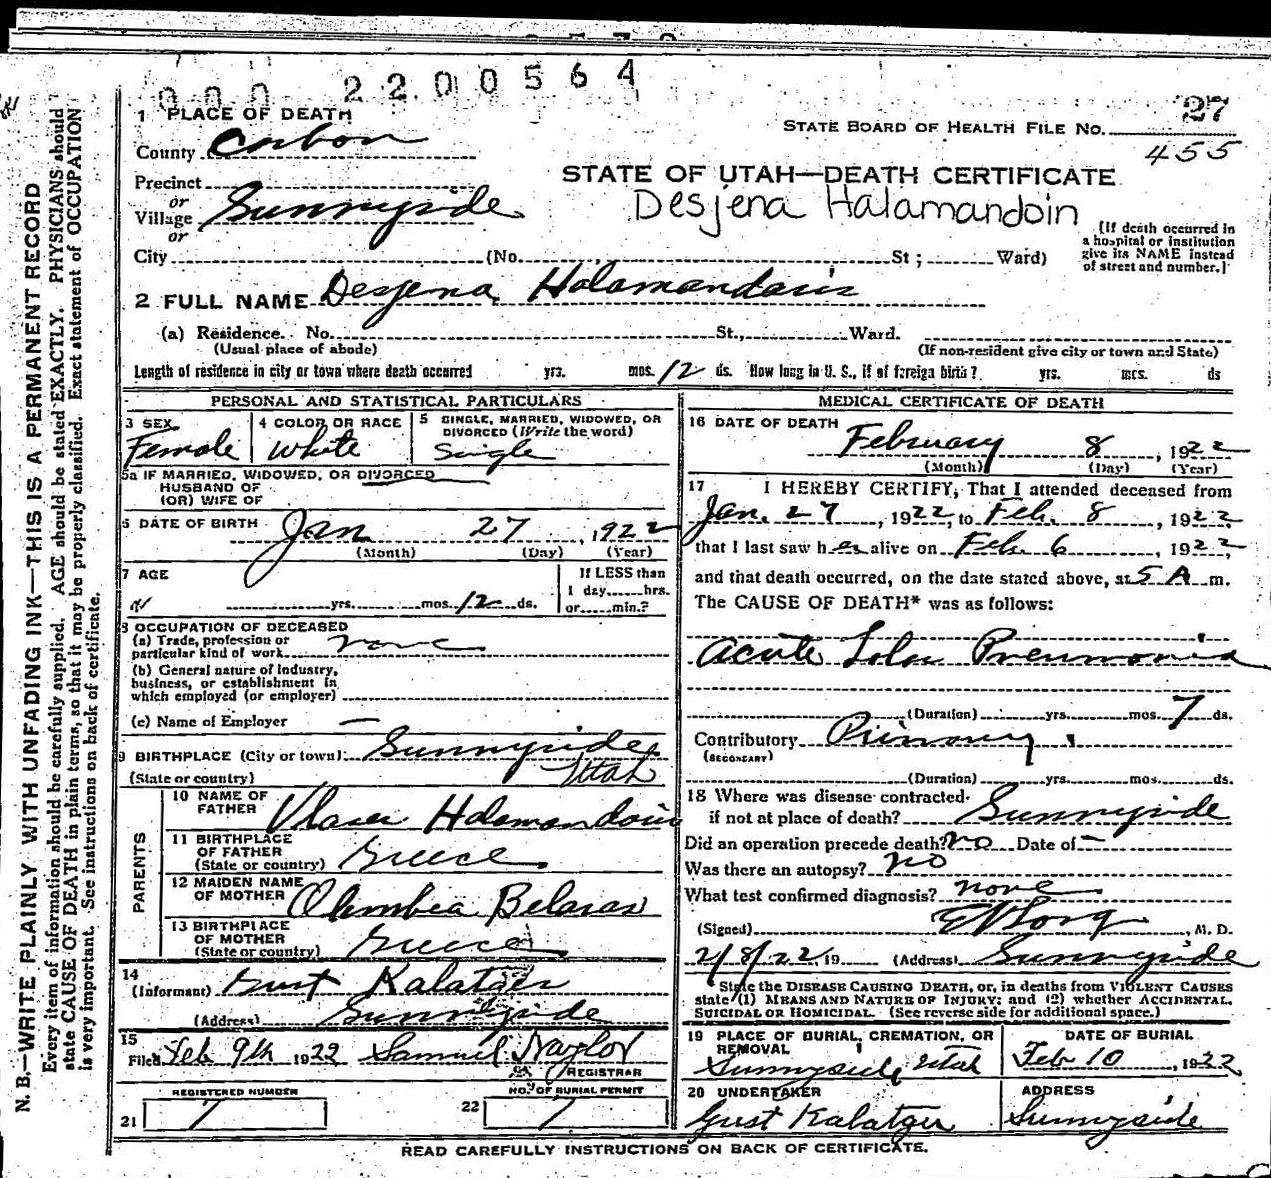 000 2200564
27
1 PLACE OF DEATH
STATE BOARD OF HEALTH FILE No.
455
County Carbon
STATE OF UTAH—DEATH CERTIFICATE
Precinct
or
Village Sunnyside
or
Desjena Halamandoin
[If death occurred in
a hospital or institution
give its NAME instead
of street and number.]
City (No. St; Ward)
2 FULL NAME Desjena Halamandaris
(a) Residence. No. St., Ward.
(Usual place of abode) (If non-resident give city or town and State)
Length of residence in city or town where death occurred yrs. mos. 12 ds. How long in U. S., if of foreign birth? yrs. mos. ds
PERSONAL AND STATISTICAL PARTICULARS
3 SEX
Female
4 COLOR OR RACE
White
5 SINGLE, MARRIED, WIDOWED, OR
DIVORCED (Write the word)
Single
5a IF MARRIED, WIDOWED, OR DIVORCED
HUSBAND OF
(OR) WIFE OF
6 DATE OF BIRTH Jan 27, 1922
(Month) (Day) (Year)
7 AGE
yrs. mos. 12 ds.
If LESS than
1 day hrs.
or min.?
8 OCCUPATION OF DECEASED
(a) Trade, profession or
particular kind of work none
(b) General nature of Industry,
business, or establishment in
which employed (or employer)
(c) Name of Employer —
9 BIRTHPLACE (City or town) Sunnyside
(State or country) Utah
PARENTS
10 NAME OF
FATHER Halamandaris
11 BIRTHPLACE
OF FATHER
(State or country) Greece
12 MAIDEN NAME
OF MOTHER Olumbea Belaras
13 BIRTHPLACE
OF MOTHER
(State or country) Greece
14
(Informant) Gust Kalatger
(Address) Sunnyside
15
Filed Feb 9th 1922 Samuel Naylor
REGISTRAR
REGISTERED NUMBER
21 7
NO. OF BURIAL PERMIT
22 7
MEDICAL CERTIFICATE OF DEATH
16 DATE OF DEATH February 8, 1922
(Month) (Day) (Year)
17 I HEREBY CERTIFY, That I attended deceased from
Jan. 27, 1922, to Feb. 8, 1922,
that I last saw her alive on Feb 6, 1922,
and that death occurred, on the date stated above, at 5 A m.
The CAUSE OF DEATH* was as follows:
Acute Lobar Pneumonia
(Duration) yrs. mos. 7 ds.
Contributory Primary.
(SECONDARY)
(Duration) yrs. mos. ds.
18 Where was disease contracted
if not at place of death? Sunnyside
Did an operation precede death? no Date of —
Was there an autopsy? no
What test confirmed diagnosis? none
(Signed) , M. D.
2/8/22 19 (Address) Sunnyside
State the DISEASE CAUSING DEATH, or, in deaths from VIOLENT CAUSES
state (1) MEANS AND NATURE OF INJURY; and (2) whether ACCIDENTAL,
SUICIDAL OR HOMICIDAL. (See reverse side for additional space.)
19 PLACE OF BURIAL, CREMATION, OR
REMOVAL
Sunnyside Utah
DATE OF BURIAL
Feb 10, 1922
20 UNDERTAKER
Gust Kalatger
ADDRESS
Sunnyside
READ CAREFULLY INSTRUCTIONS ON BACK OF CERTIFICATE.
N. B.—WRITE PLAINLY WITH UNFADING INK—THIS IS A PERMANENT RECORD
Every item of information should be carefully supplied. AGE should be stated EXACTLY. PHYSICIANS should
state CAUSE OF DEATH in plain terms, so that it may be properly classified. Exact statement of OCCUPATION
is very important. See instructions on back of certificate.